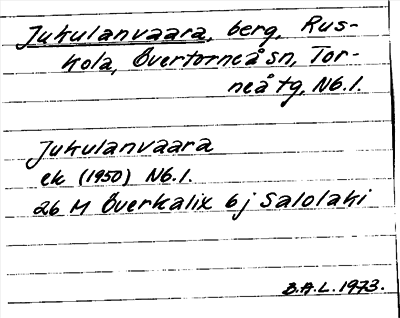 Jukulanvaara, berg, Rus-
kola, Övertorneå sn, Tor-
neå tg, Nb.l.
Jukulanvaara
ek (1950) Nb.l.
26 M Överkalix 6j Salolaki
B.A.L. 1973.